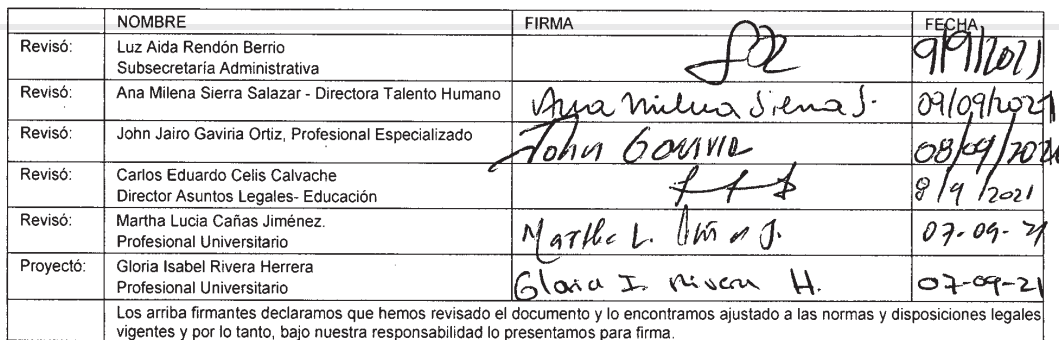 NOMBRE FIRMA FECHA
Revisó: Luz Aida Rendón Berrio 9/9/2021
Subsecretaria Administrativa
Revisó: Ana Milena Sierra Salazar - Directora Talento Humano Ana Milena Sierra S. 09/09/2021
Revisó: John Jairo Gaviria Ortiz, Profesional Especializado John Gaviria 08/09/2021
Revisó: Carlos Eduardo Celis Calvache 8/9/2021
Director Asuntos Legales- Educación
Revisó: Martha Lucia Cañas Jiménez. Martha L. Cañas J. 07-09-21
Profesional Universitario
Proyectó: Gloria Isabel Rivera Herrera Gloria I. Rivera H. 07-09-21
Profesional Universitario
Los arriba firmantes declaramos que hemos revisado el documento y lo encontramos ajustado a las normas y disposiciones legales
vigentes y por lo tanto, bajo nuestra responsabilidad lo presentamos para firma.